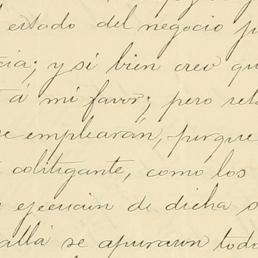 estado del negocio p
cia; y si bien creo qu
tá mi favor; pero
e emplearán, porque
colitigante, como los
ejecución de dicha s
allá se apuraron todo